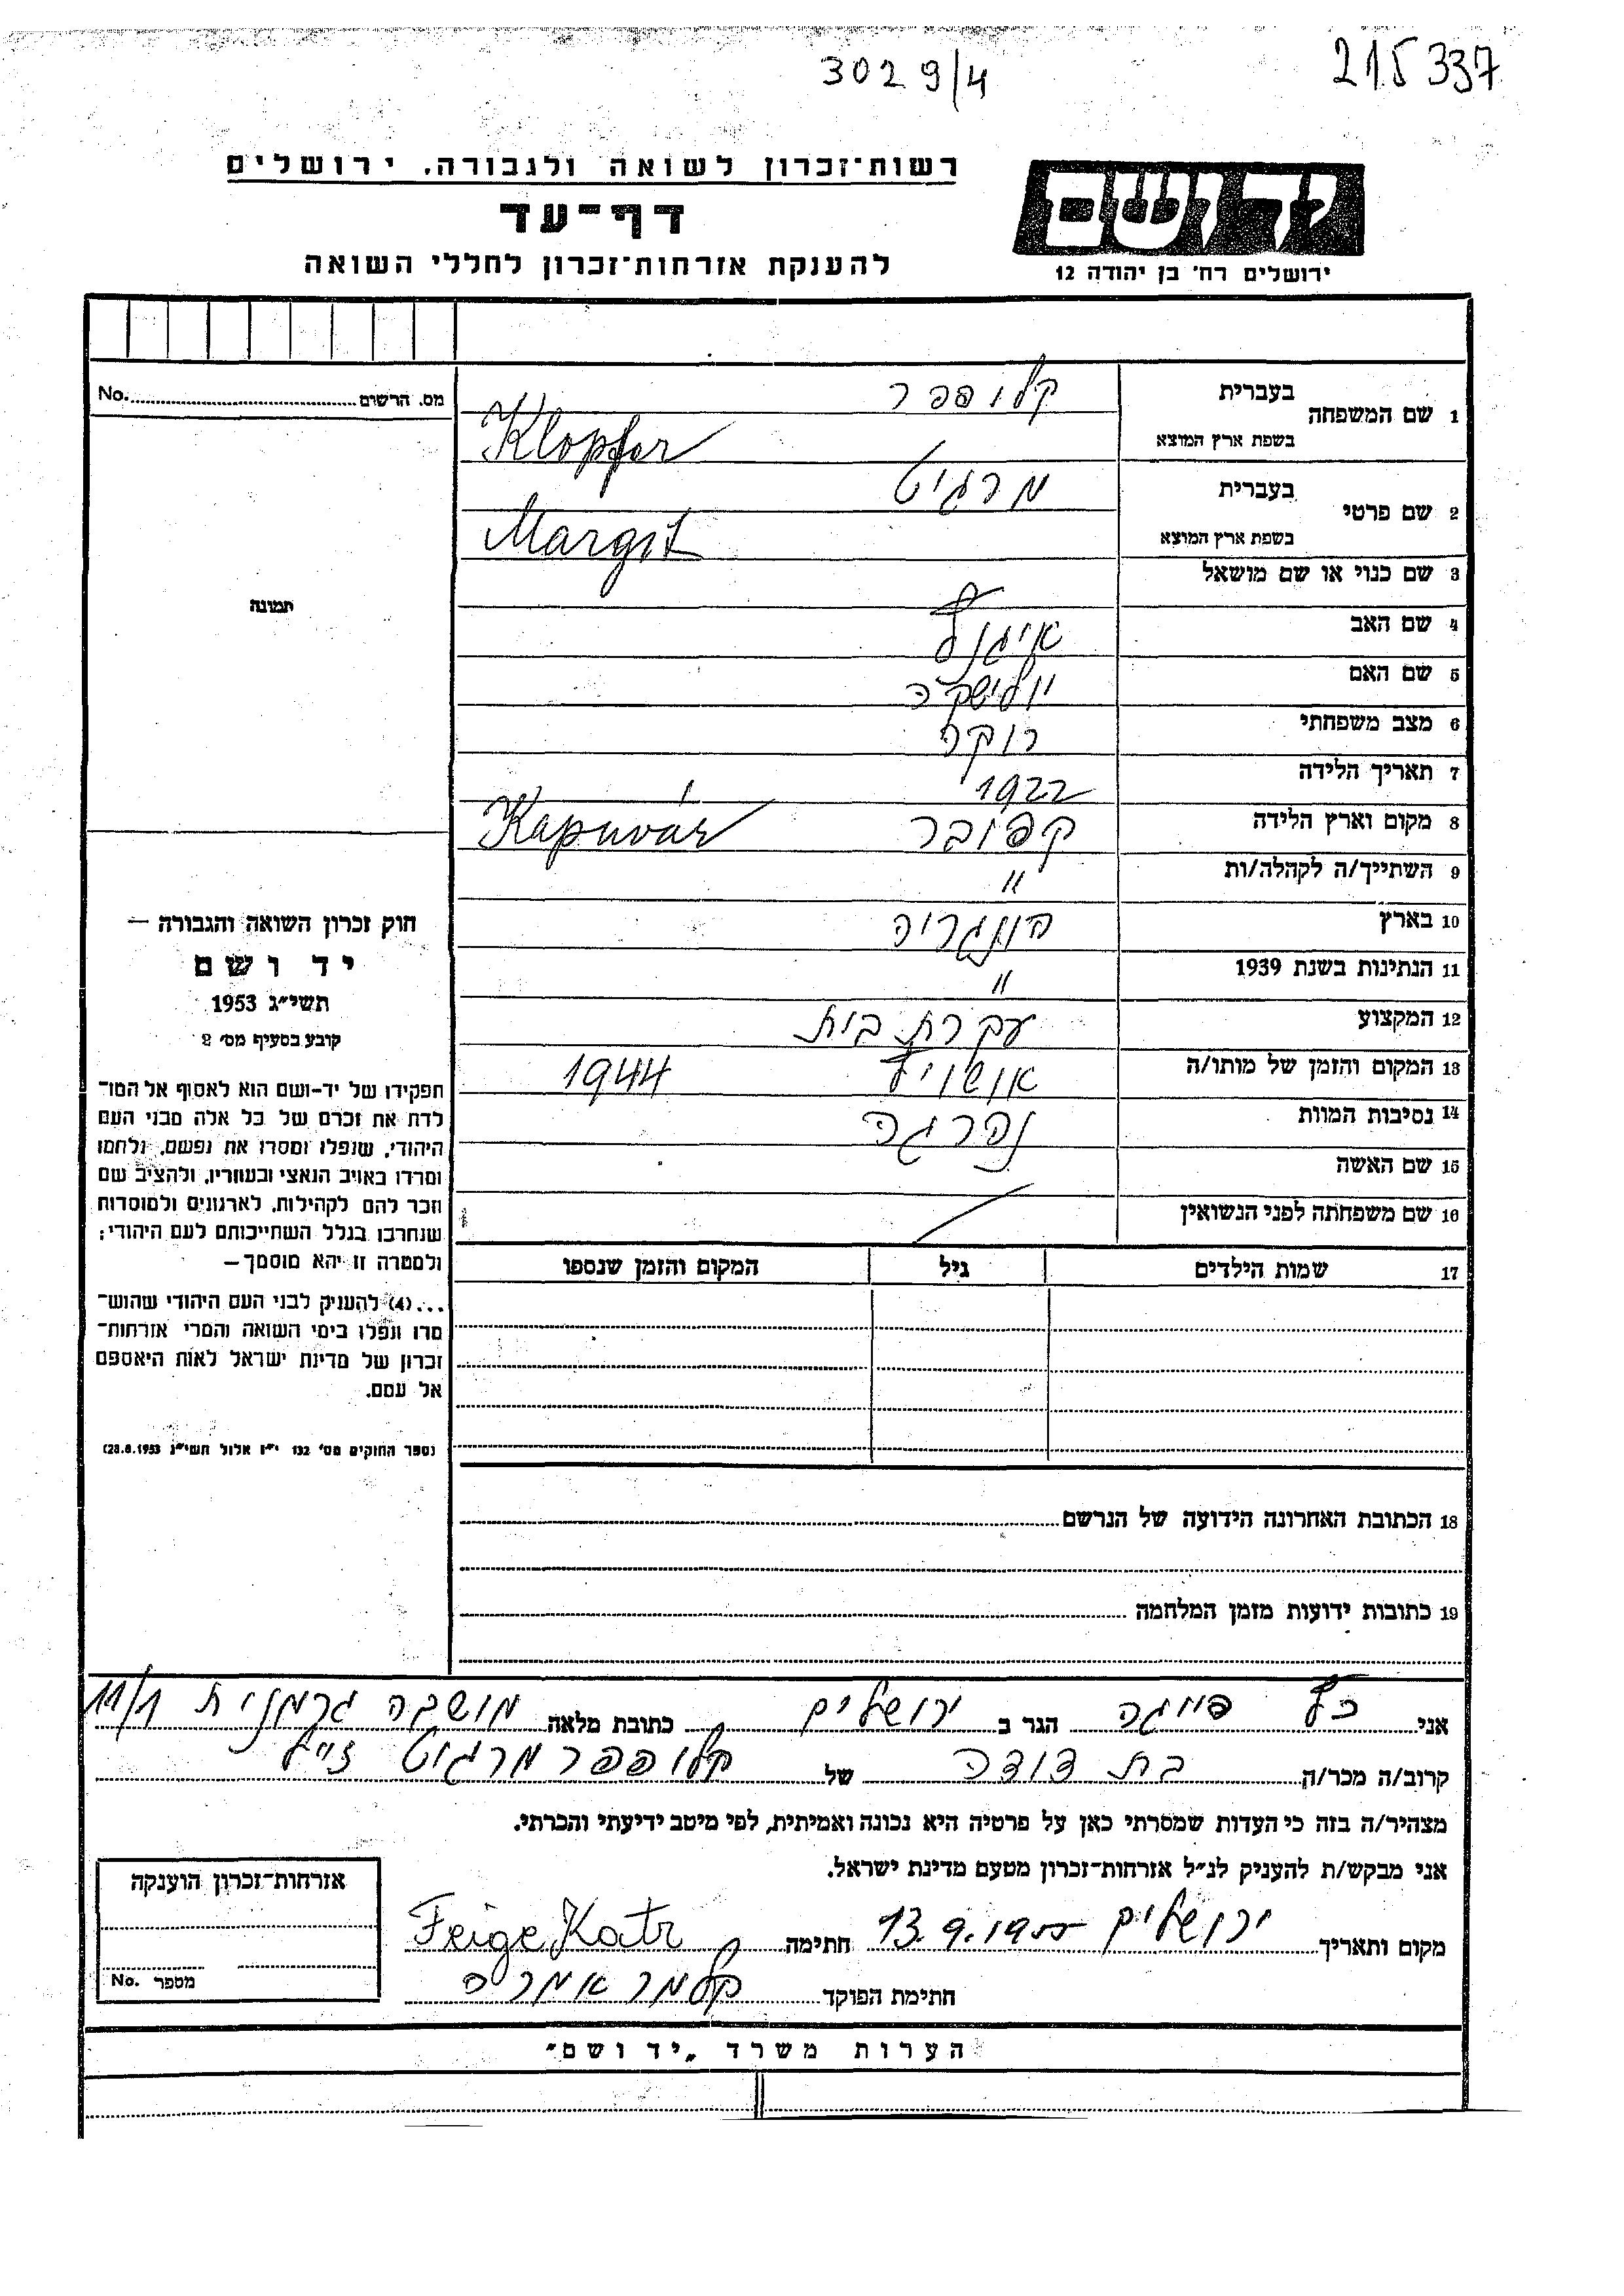 3029/4
215337
רשות־זכרון לשואה ולגבורה. ירושלים
דף־עד
להענקת אזרחות־זכרון לחללי השואה
יד ושם
ירושלים רח' בן יהודה 12
מס. הרשום No.
תמונה
1 שם המשפחה בעברית קלופפר
בשפת ארץ המוצא Klopfer
2 שם פרטי בעברית מרגיט
בשפת ארץ המוצא Margit
3 שם כנוי או שם מושאל
4 שם האב
5 שם האם
6 מצב משפחתי רוקה
7 תאריך הלידה 1922
8 מקום וארץ הלידה קפובר Kapuvár
9 השתייך/ה לקהלה/ות "
10 בארץ הונגריה
11 הנתינות בשנת 1939 "
12 המקצוע עקרת בית
13 המקום והזמן של מותו/ה אושויץ 1944
14 נסיבות המוות נהרגה
15 שם האשה
16 שם משפחתה לפני הנשואין
17 שמות הילדים גיל המקום והזמן שנספו
18 הכתובת האחרונה הידועה של הנרשם
19 כתובות ידועות מזמן המלחמה
חוק זכרון השואה והגבורה —
יד ושם
תשי"ג 1953
קובע בסעיף מס' 2
תפקידו של יד־ושם הוא לאסוף אל המו־
לדת את זכרם של כל אלה מבני העם
היהודי, שנפלו ומסרו את נפשם, נלחמו
ומרדו באויב הנאצי ובעוזריו, ולהציב שם
וזכר להם לקהילות, לארגונים ולמוסדות
שנחרבו בגלל השתייכותם לעם היהודי;
ולמטרה זו יהא מוסמך —
...(4) להענק לבני העם היהודי שהוש־
מדו ונפלו בימי השואה והמרי אזרחות־
זכרון של מדינת ישראל לאות היאספם
אל עמם.
(ספר החוקים מס' 132 י"ז אלול תשי"ג 28.8.1953)
אני כץ פייגה הגר ב ירושלים כתובת מלאה מושבה גרמנית 11/1
קרוב/ה מכר/ה בת דודה של קלופפר מרגיט ז"ל
מצהיר/ה בזה כי העדות שמסרתי כאן על פרטיה היא נכונה ואמיתית, לפי מיטב ידיעתי והכרתי.
אני מבקש/ת להעניק לנ"ל אזרחות־זכרון מטעם מדינת ישראל.
מקום ותאריך ירושלים 13.9.1955 חתימה Feige Katz
חתימת הפוקד
אזרחות־זכרון הוענקה
מספר No.
הערות משרד „יד ושם"